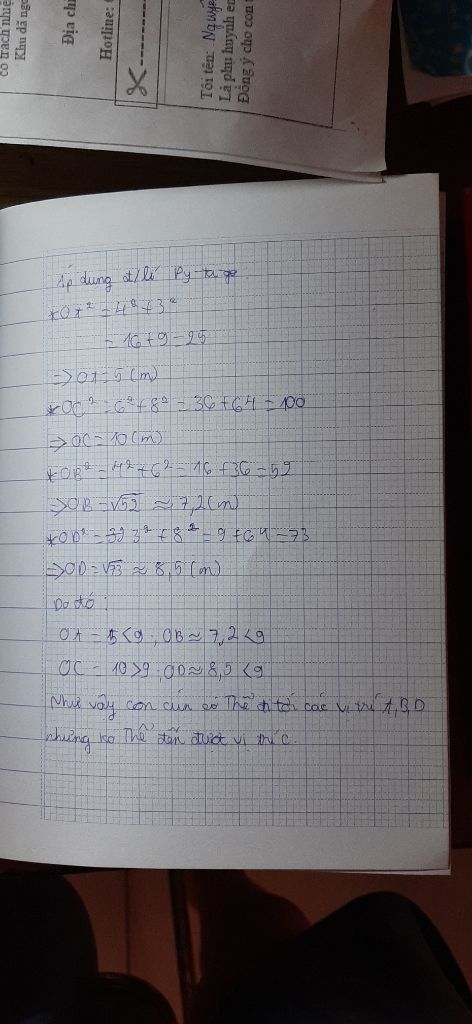 có trách nhiệ
Khu dã ngo
Địa ch
Hotline:
Tôi tên: Nguyễ
Là phụ huynh e
Đồng ý cho con
Áp dụng đ/lí Py-ta-go
*OA² = 4² + 3²
= 16 + 9 = 25
=> OA = 5 (m)
*OC² = 6² + 8² = 36 + 64 = 100
=> OC = 10 (m)
*OB² = 4² + 6² = 16 + 36 = 52
=> OB = √52 ≈ 7,2 (m)
*OD² = 3² + 8² = 9 + 64 = 73
=> OD = √73 ≈ 8,5 (m)
Do đó:
OA = 5 < 9; OB ≈ 7,2 < 9
OC = 10 > 9; OD ≈ 8,5 < 9
Như vậy con cún có thể đi tới các vị trí A, B, D
nhưng ko thể đến được vị trí C.